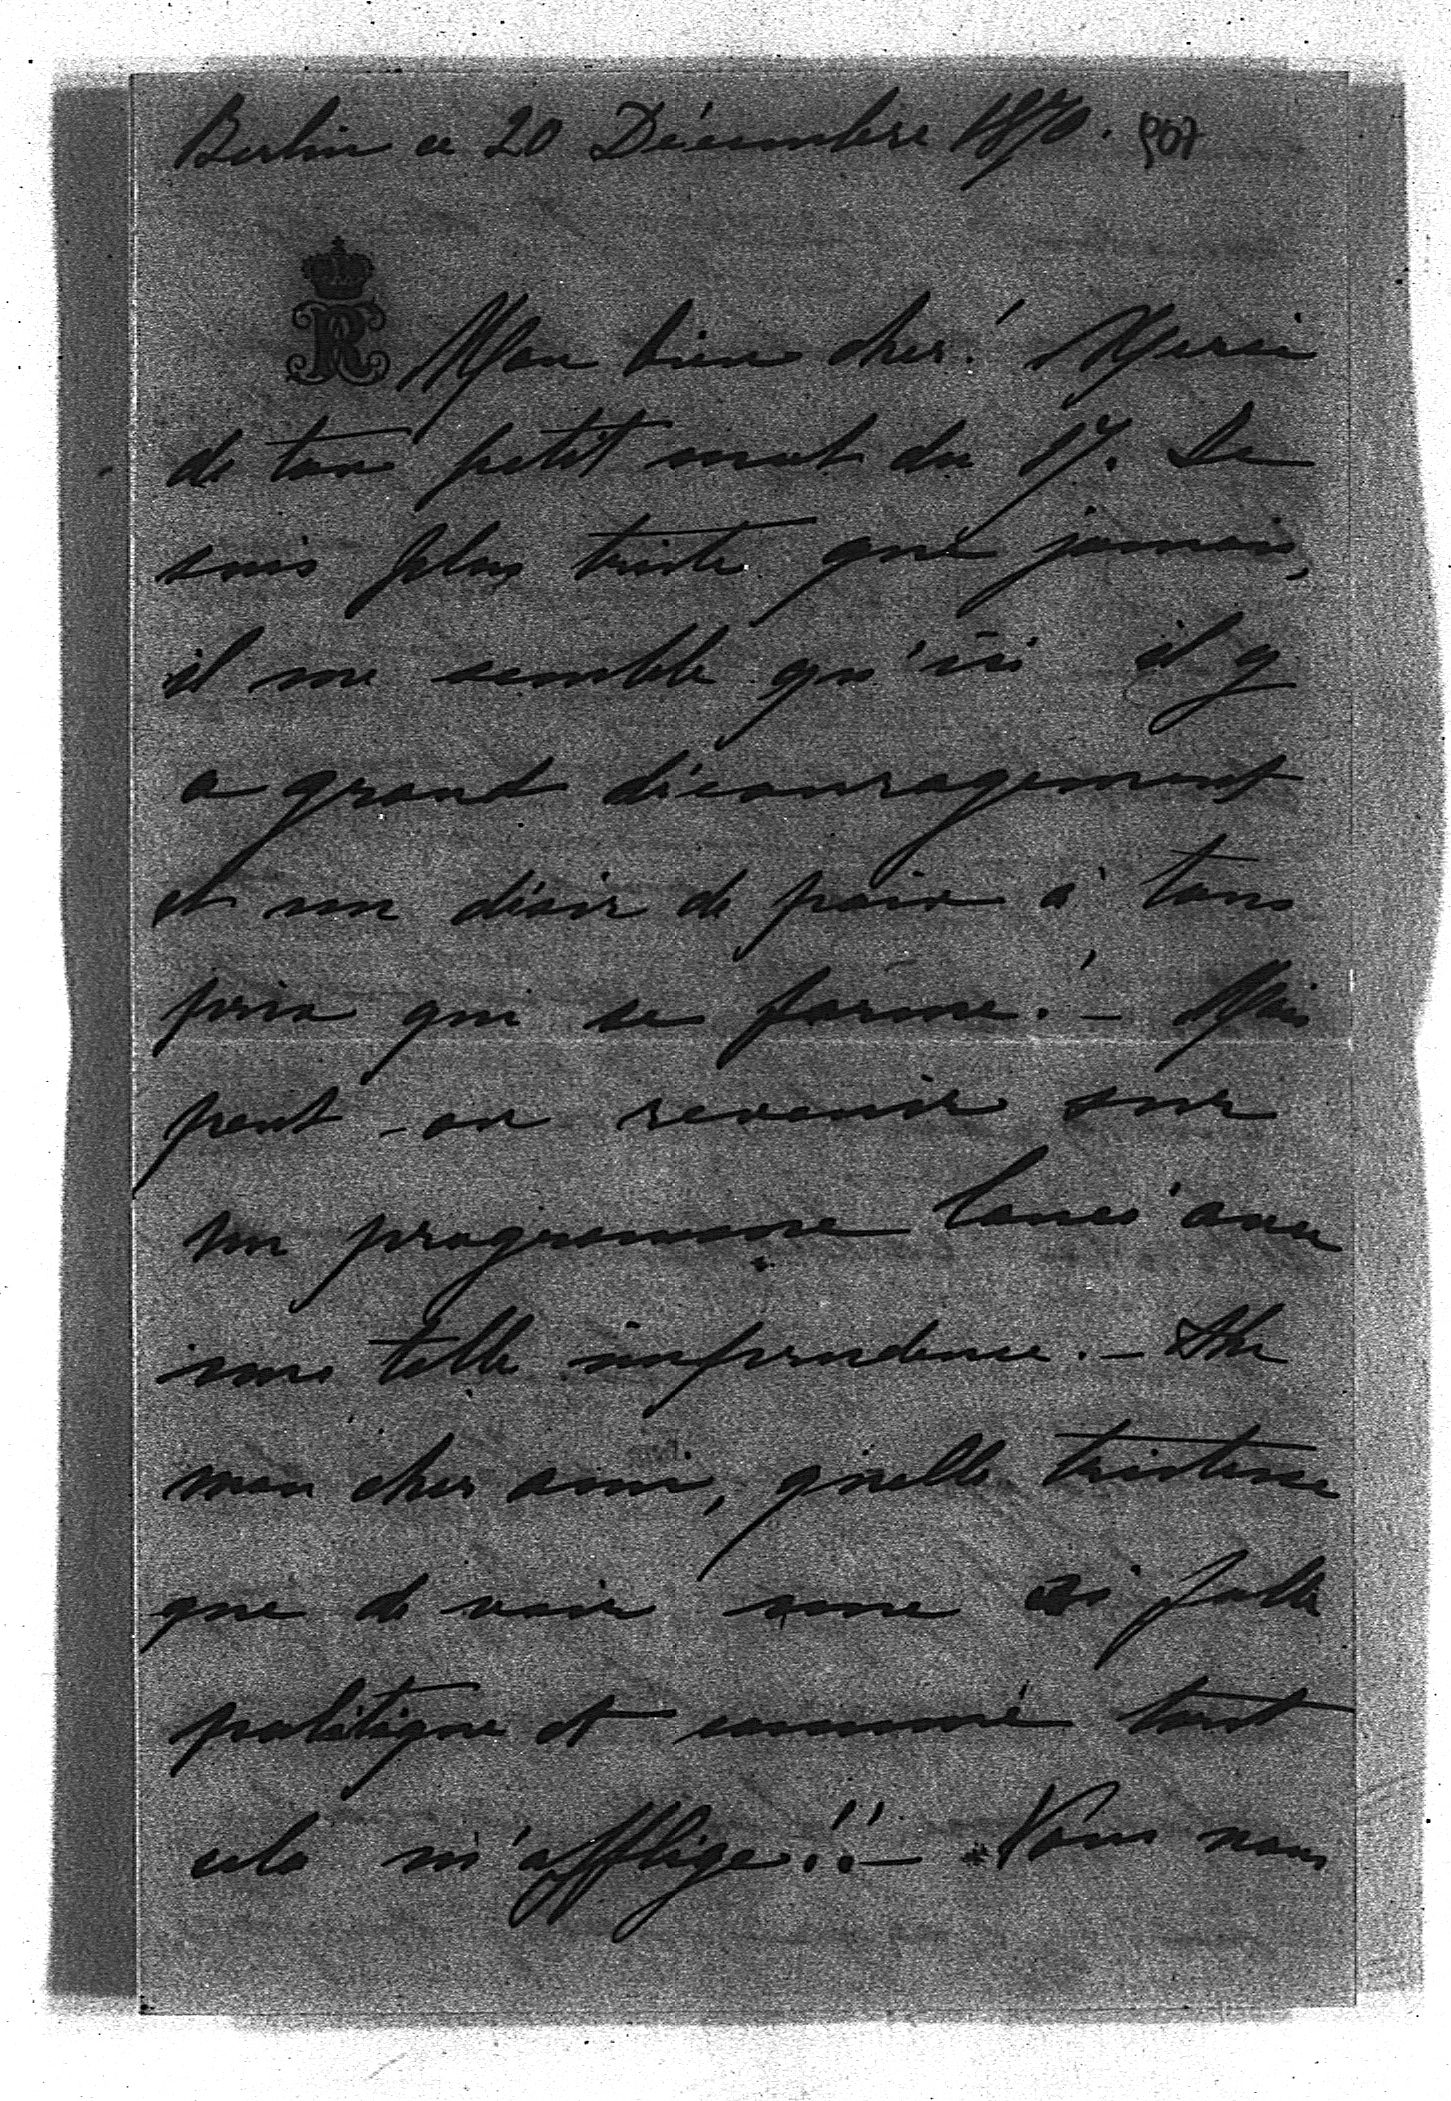 Berlin ce 20 Décembre 1870. 907
Mon bien cher! Merci
de ton petit mot du 17. Je
suis plus triste que jamais,
il me semble qu'ici il y
a grand découragement
et un désir de paix à tous
prix qui se forme! – Mais
peut-on revenir sur
un programme lancé avec
une telle imprudence. – Ah
mon cher ami, quelle tristesse
que de voir une si folle
politique et comme tout
cela m'afflige!! – Vous nous